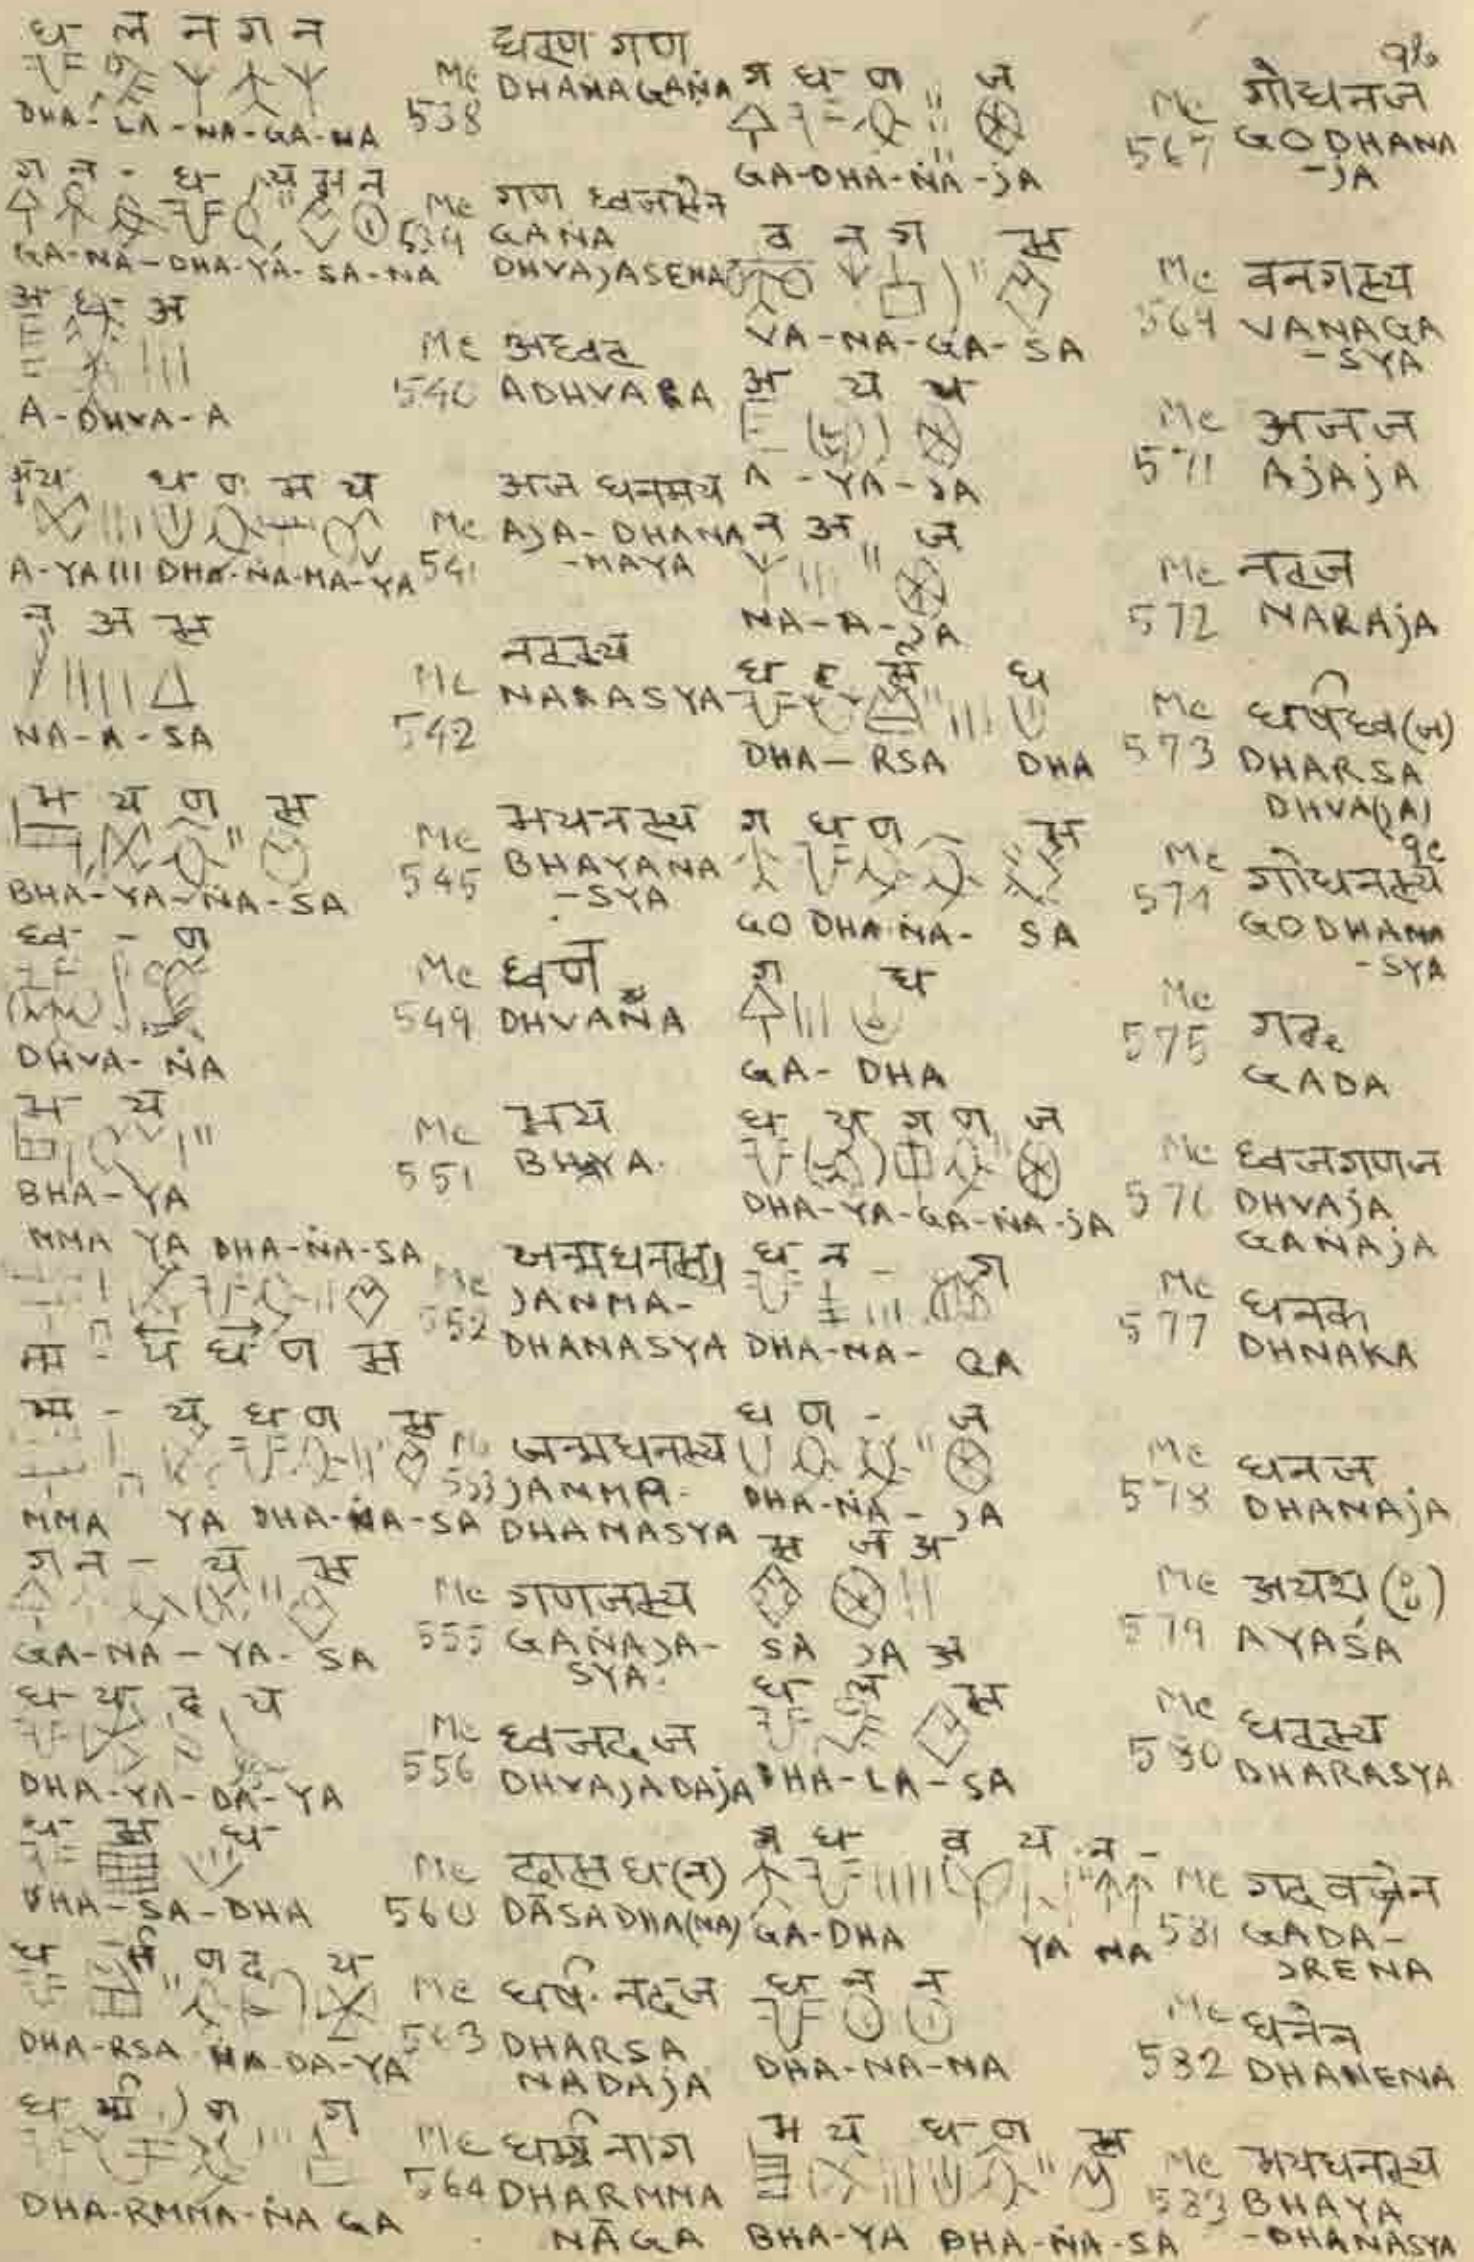 ध - ल न ग न
DHA - LA - NA - GA - NA
Me
538
धरण गण
DHANAGAṆA
ग न - ध य स न
GA - NA - DHA - YA - SA - NA
Me
गण ध्वजसेन
GAṆA
DHVAJASENA
अ ध - अ
A - DHVA - A
Me
540
अध्वर
ADHVARA
ध ण म य
A - YA III DHA - ṄA - MA - YA
Me
541
अज धनमय
AJA - DHANA
- MAYA
न अ स
NA - A - SA
Me
542
नरस्य
NARASYA
भ य ण स
BHA - YA - ṄA - SA
Me
545
भयनस्य
BHAYANA
- SYA
ध्व - ण
DHVA - ṄA
Me
549
ध्वण
DHVAṄA
भ य
BHA - YA
Me
551
भय
BHAYA.
MMA YA DHA - ṄA - SA
म्म - य ध ण स
Me
552
जन्मधनस्य
JANMA -
DHANASYA
म्म - य ध ण स
MMA YA DHA - ṄA - SA
553
जन्मधनस्य
JANMA -
DHANASYA
ग न - य स
GA - NA - YA - SA
Me
555
गणजस्य
GAṆAJA -
SYA.
ध य द य
DHA - YA - DA - YA
Me
556
ध्वजदज
DHVAJADAJA
ध स ध
DHA - SA - DHA
Me
560
दास ध(न)
DĀSADHA(NA)
DHA - RSA ṄA - DA - YA
Me
563
धर्ष नदज
DHARSA
NADAJA
DHA - RMMA - ṄA GA
Me
564
धर्म्म नाग
DHARMMA
NĀGA
ग ध - ण ज
GA - DHA - ṄA - JA
Me
567
गोधनज
GODHANA
- JA
व न ग स
VA - NA - GA - SA
Me
569
वनगस्य
VANAGA
- SYA
A - YA - JA
Me
571
अजज
AJAJA
न अ ज
NA - A - JA
Me
572
नरज
NARAJA
DHA - RSA DHA
Me
573
धर्षध्व(ज)
DHARSA
DHVA(JA)
ग ध ण - स
GO DHA - ṄA - SA
Me
574
गोधनस्य
GODHANA
- SYA
ग ध
GA - DHA
Me
575
गद
GADA
ध य ग ण ज
DHA - YA - GA - ṄA - JA
Me
576
ध्वजगणज
DHVAJA
GAṆAJA
ध न - ग
DHA - NA - GA
Me
577
धनक
DHNAKA
ध ण - ज
DHA - ṄA - JA
Me
578
धनज
DHANAJA
स ज अ
SA JA अ
Me
579
AYAŚA
DHA - LA - SA
Me
580
धरस्य
DHARASYA
ग ध व य न -
GA - DHA YA NA
Me
581
गद वज्रेन
GADA -
JRENA
ध न न
DHA - NA - NA
Me
582
धनेन
DHANENA
भ य ध ण स
BHA - YA DHA - ṄA - SA
Me
583
भयधनस्य
BHAYA
- DHANASYA